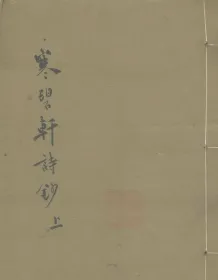 寒碧軒詩鈔上